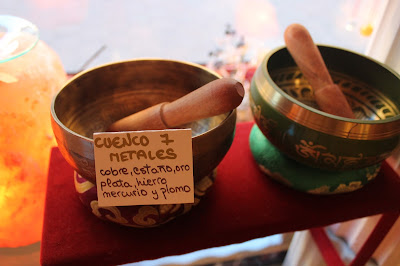 CUENCO 7
METALES
cobre, estaño, oro
plata, hierro
mercurio y plomo